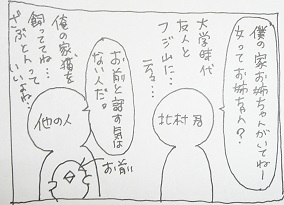 僕の家お姉ちゃんがいてねー
女ってお姉ちゃん?
大学時代
友人と
フジ山に…
云々…
北村君
お前と話す気は
ない人だ。
俺の家、猫を
飼っててね…
ざぶとんって
いいよね。
他の人
お前